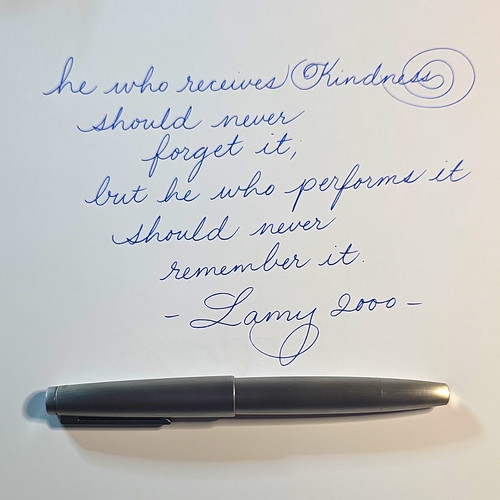 he who receives Kindness
should never
forget it;
but he who performs it
should never
remember it.
- Lamy 2000 -